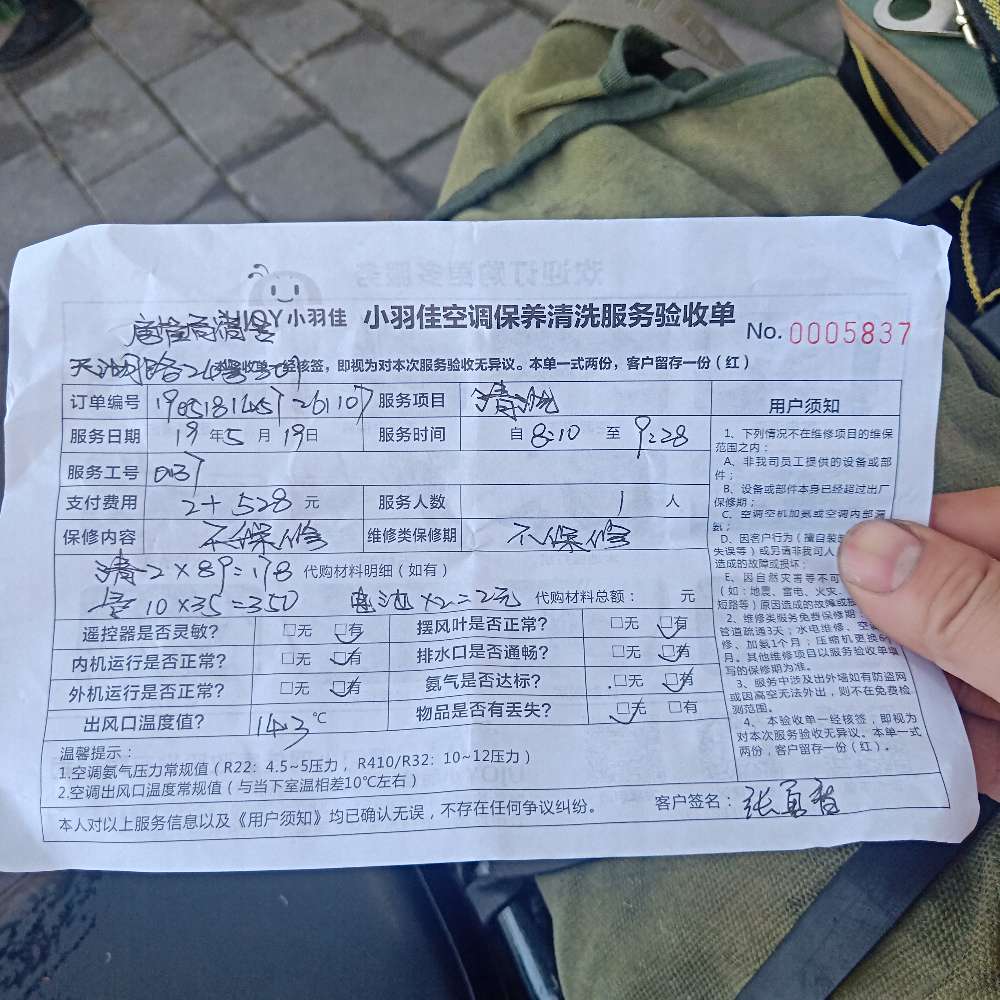 欢迎订购更多服务
UJOY小羽佳 小羽佳空调保养清洗服务验收单 No. 0005837
本验收单一经核签，即视为对本次服务验收无异议。本单一式两份，客户留存一份（红）
订单编号 服务项目 清洗
服务日期 19年5月19日 服务时间 自 8:10 至 9:28
服务工号 0037
支付费用 2+528 元 服务人数 1 人
保修内容 不保修 维修类保修期 不保修
清 2×89=178 代购材料明细（如有）
10×35=350 电池×2=2元 代购材料总额： 元
遥控器是否灵敏？ □无 □有 摆风叶是否正常？ □无 □有
内机运行是否正常？ □无 □有 排水口是否通畅？ □无 □有
外机运行是否正常？ □无 □有 氨气是否达标？ □无 □有
出风口温度值？ 14.3 ℃ 物品是否有丢失？ □无 □有
温馨提示：
1.空调氨气压力常规值（R22：4.5~5压力，R410/R32：10~12压力）
2.空调出风口温度常规值（与当下室温相差10℃左右）
本人对以上服务信息以及《用户须知》均已确认无误，不存在任何争议纠纷。 客户签名：
用户须知
1、下列情况不在维修项目的维保
范围之内：
A、非我司员工提供的设备或部
件；
B、设备或部件本身已经超过出厂
保修期；
C、空调空机加氨或空调内部漏
氨；
D、因客户行为（擅自装
失误等）或另请非我司人
造成的故障或损坏；
E、因自然灾害等不可
（如：地震、雷电、火灾、
短路等）原因造成的故障或损
2、维修类服务免费保修期
管道疏通3天；水电维修、空调
修、加氨1个月；压缩机更换6
月。其他维修项目以服务验收单填
写的保修期为准。
3、服务中涉及出外墙如有防盗网
或因高空无法外出，则不在免费检
测范围。
4、本验收单一经核签，即视为
对本次服务验收无异议。本单一式
两份，客户留存一份（红）。